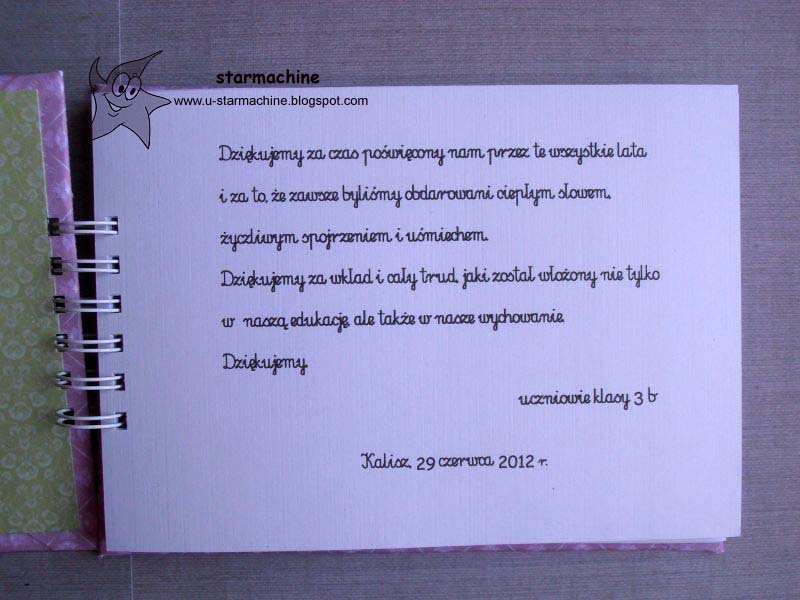 starmachine
www.u-starmachine.blogspot.com
Dziękujemy za czas poświęcony nam przez te wszystkie lata
i za to, że zawsze byliśmy obdarowani ciepłym słowem,
życzliwym spojrzeniem i uśmiechem.
Dziękujemy za wkład i cały trud, jaki został włożony nie tylko
w naszą edukację, ale także w nasze wychowanie.
Dziękujemy.
uczniowie klasy 3 b
Kalisz, 29 czerwca 2012 r.